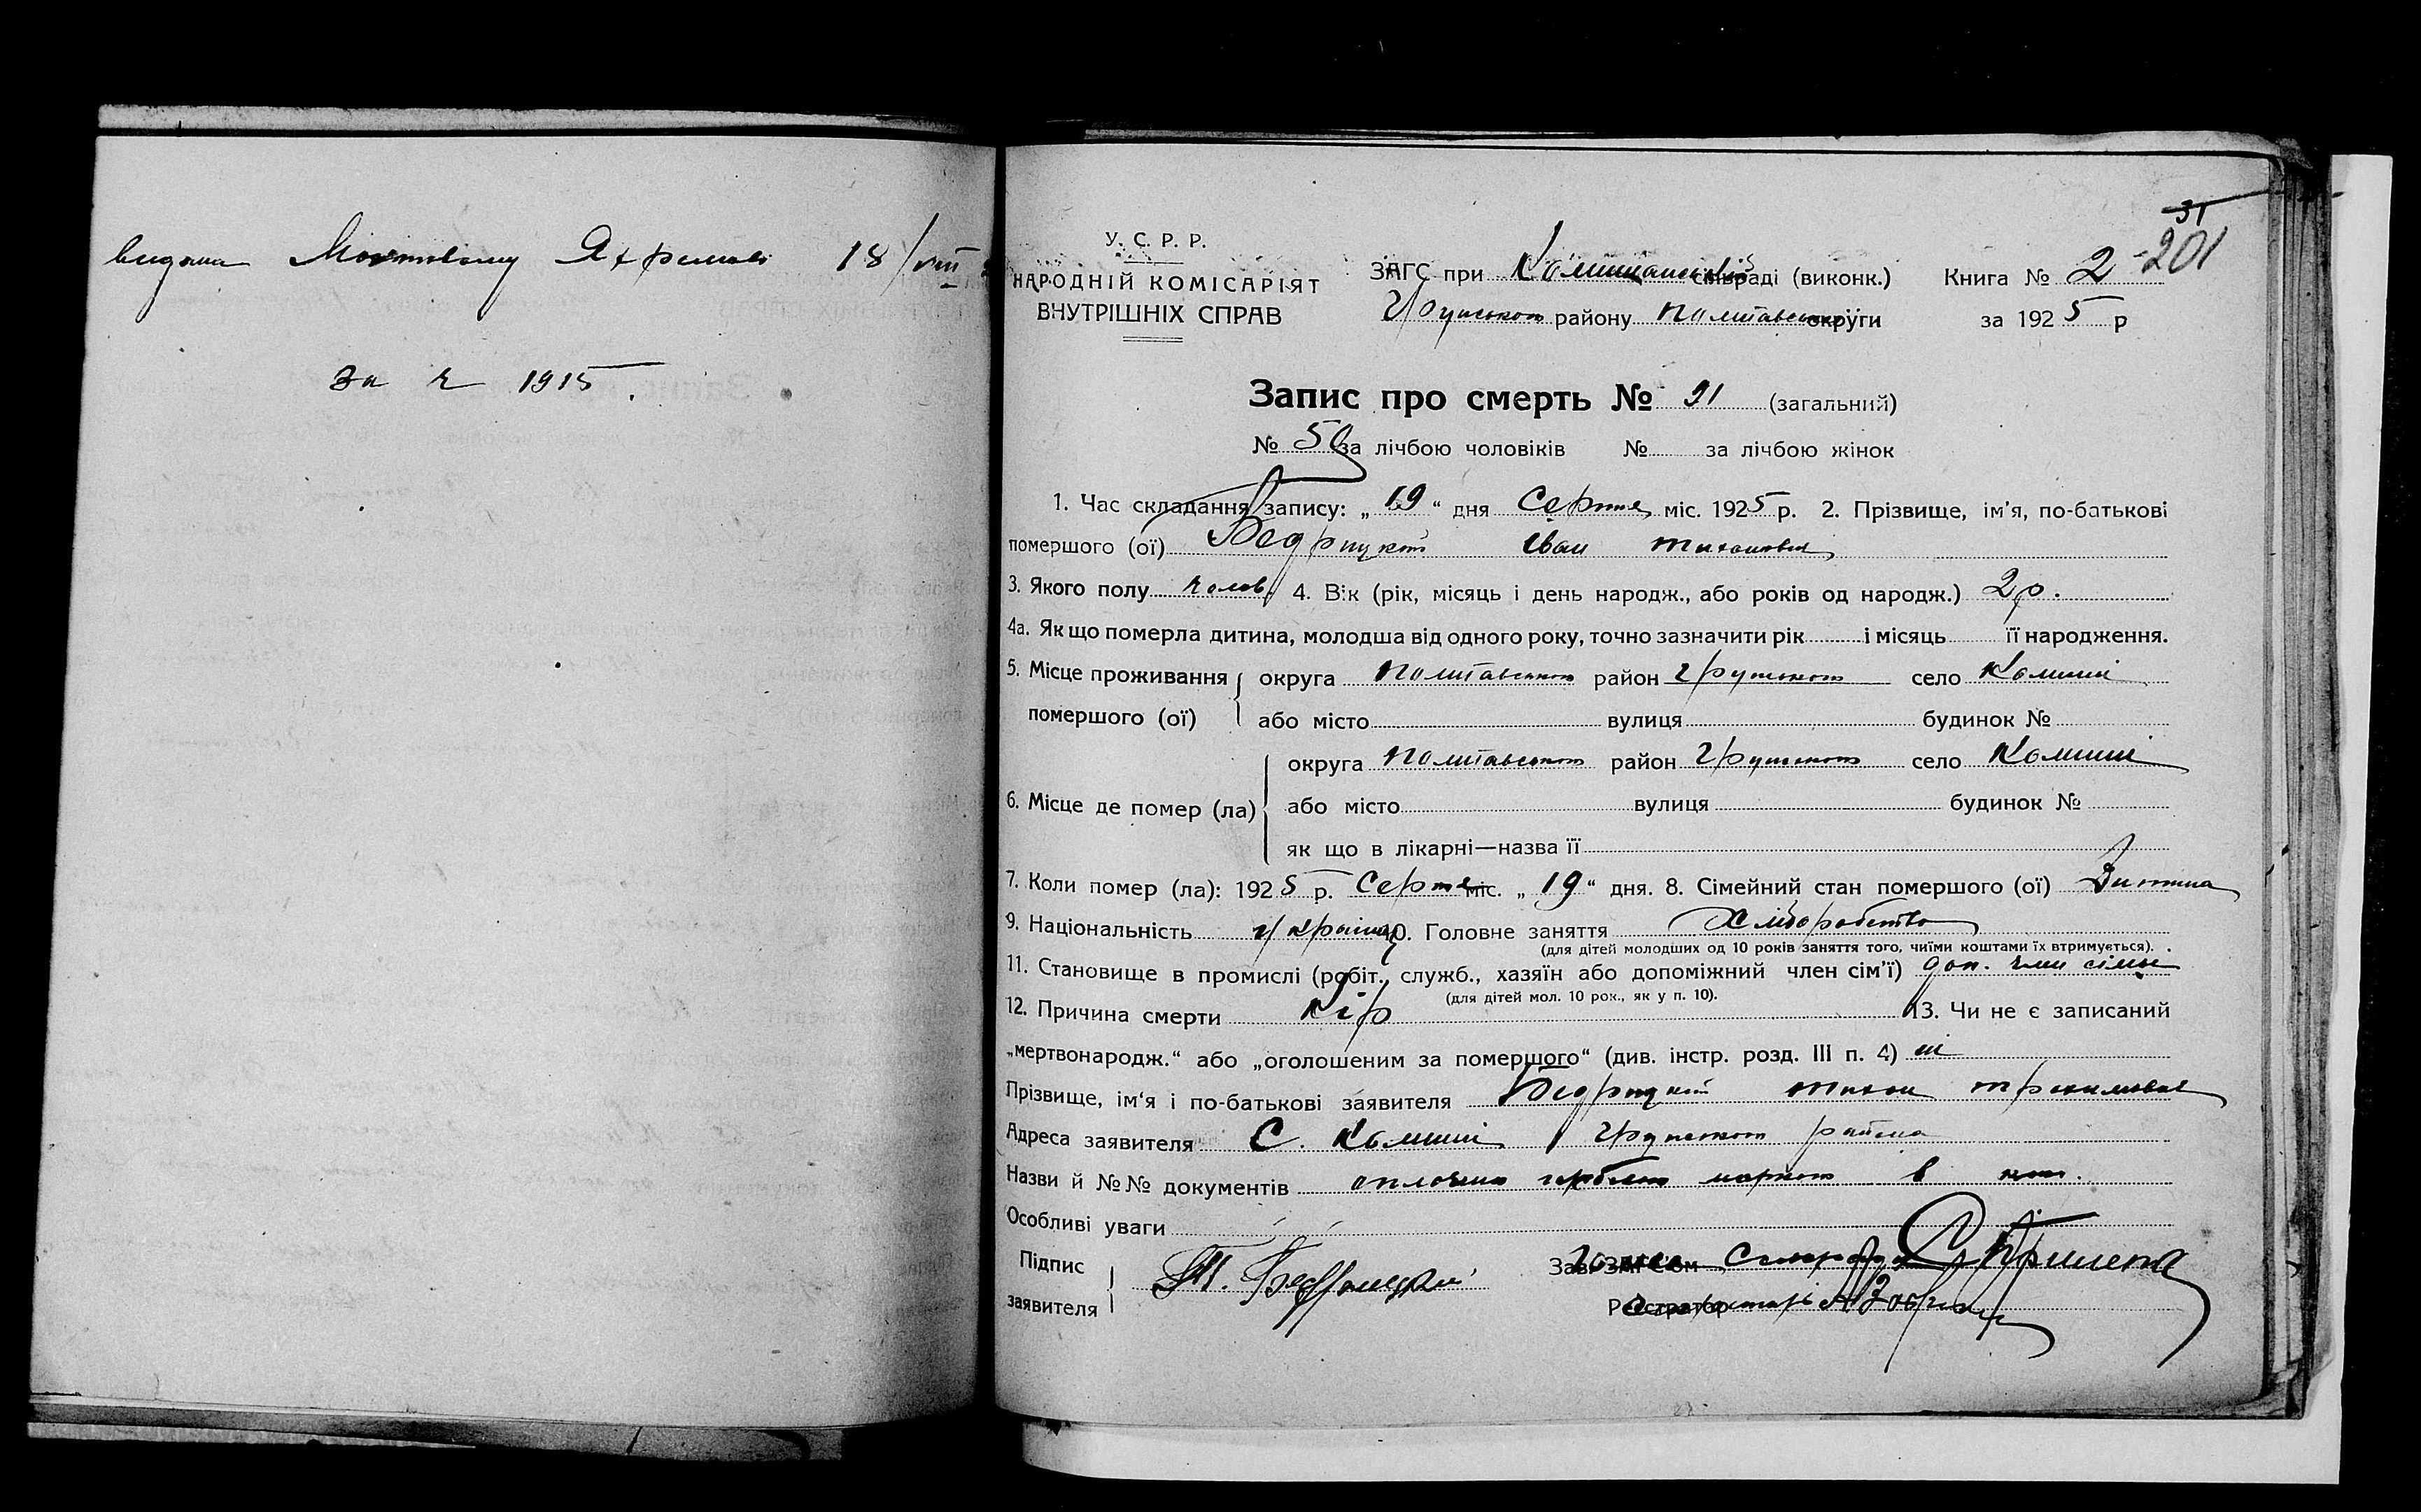 видана Мостовому Яхремові 18/VIII
за ч 1915.
31
201
У. С. Р. Р.
НАРОДНІЙ КОМІСАРІЯТ
ВНУТРІШНІХ СПРАВ
ЗАГС при Комишанській сільраді (виконк.) Книга № 2
Грунського району Полтавської округи за 1925 р
Запис про смерть № 91 (загальний)
№ 50 за лічбою чоловіків № за лічбою жінок
1. Час складання запису: „ 19 “ дня Серпня міс. 1925 р. 2. Прізвище, ім'я, по-батькові
помершого (ої) Іван Тихонович
3. Якого полу чолов. 4. Вік (рік, місяць і день народж., або років од народж.) 2 р.
4а. Як що померла дитина, молодша від одного року, точно зазначити рік і місяць її народження.
5. Місце проживання округа Полтавської район Грунського село Комиші
помершого (ої) або місто вулиця будинок №
округа Полтавської район Грунського село Комиші
6. Місце де помер (ла) або місто вулиця будинок №
як що в лікарні—назва її
7. Коли помер (ла): 1925 р. Серпня міс. „ 19 “ дня. 8. Сімейний стан помершого (ої) Дитина
9. Національність україн. 10. Головне заняття Хліборобство
(для дітей молодших од 10 років заняття того, чиїми коштами їх втримується).
11. Становище в промислі (робіт., служб., хазяїн або допоміжний член сім'ї) доп. член сімьї
(для дітей мол. 10 рок., як у п. 10).
12. Причина смерти Кір 13. Чи не є записаний
„мертвонародж.“ або „оголошеним за помершого“ (див. інстр. розд. III п. 4) ні
Прізвище, ім'я і по-батькові заявителя Тихон Трохимович
Адреса заявителя С. Комиші Грунського района
Назви й №№ документів оплочено гербовою маркою в коп.
Особливі уваги
Підпис
заявителя
Т.
Зав. ЗАГС'ом Голова Сільради
Реєстратор Секретарь